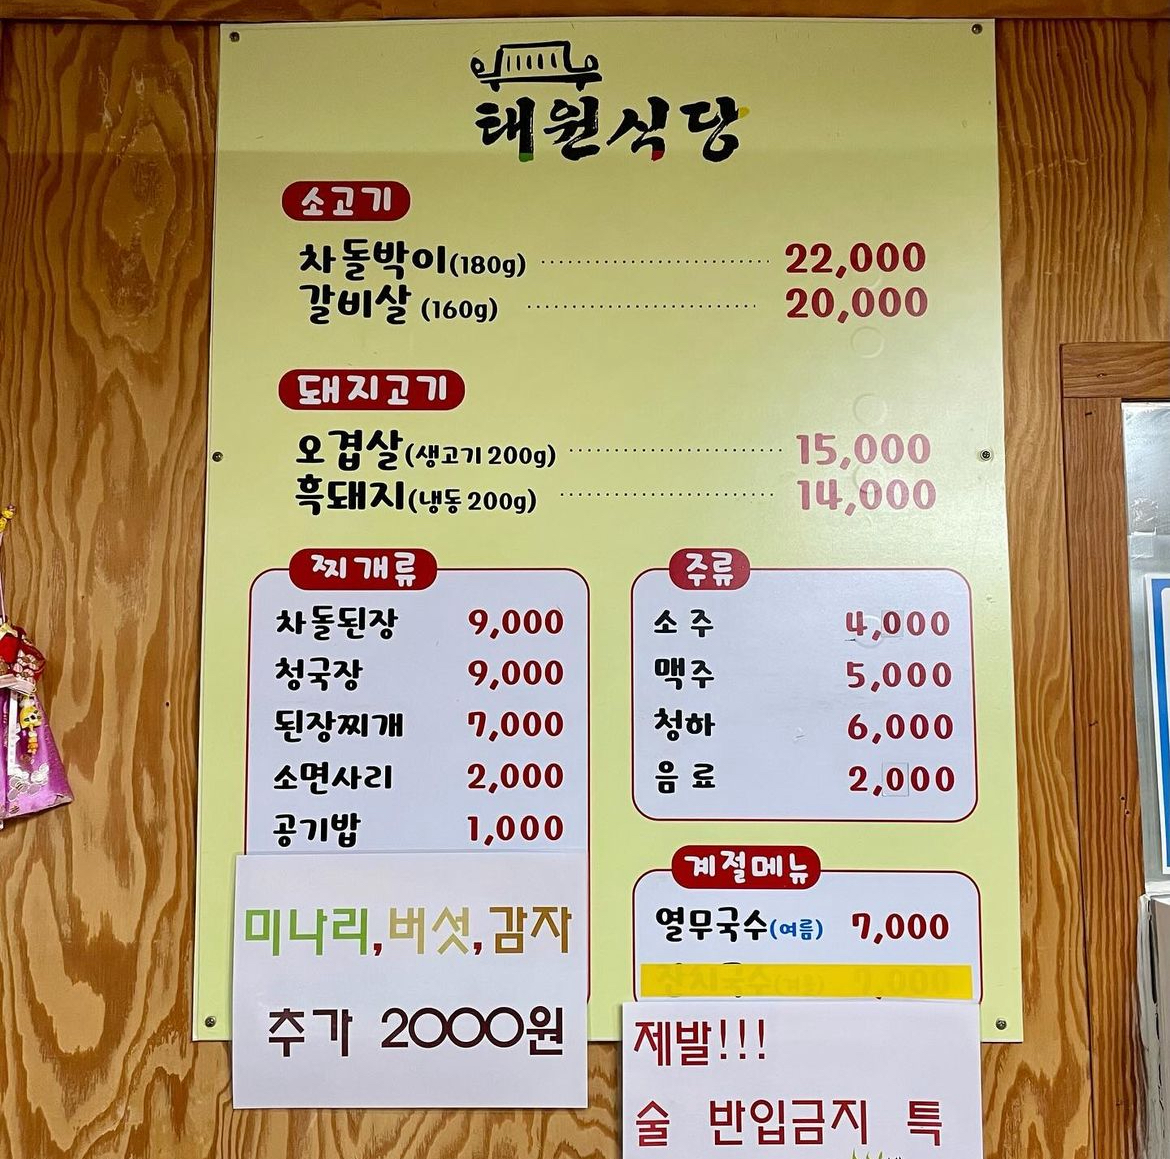 태원식당
소고기
차돌박이(180g) 22,000
갈비살 (160g) 20,000
돼지고기
오겹살(생고기 200g) 15,000
흑돼지(냉동 200g) 14,000
찌개류
차돌된장 9,000
청국장 9,000
된장찌개 7,000
소면사리 2,000
공기밥 1,000
미나리,버섯,감자
추가 2000원
주류
소주 4,000
맥주 5,000
청하 6,000
음료 2,000
계절메뉴
열무국수(여름) 7,000
잔치국수(겨울) 7,000
제발!!!
술 반입금지 특